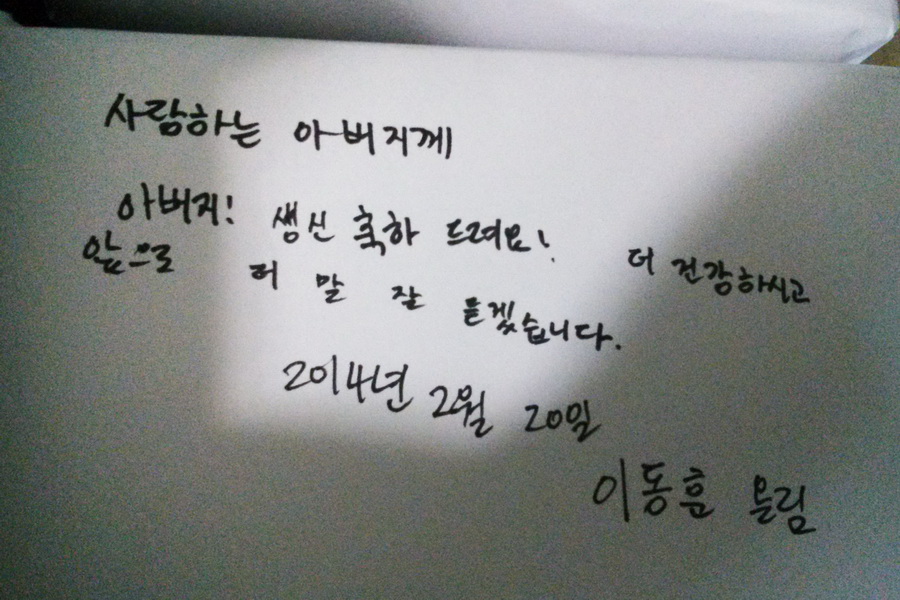 사랑하는 아버지께
아버지! 생신 축하 드려요! 더 건강하시고
앞으로 더 말 잘 듣겠습니다.
2014년 2월 20일
이동훈 올림